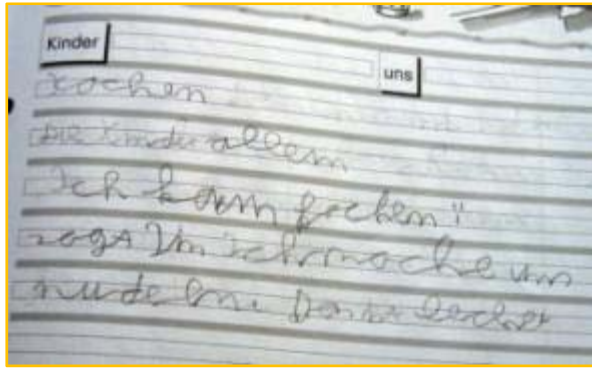 Kinder
uns
kochen
Die Kinder allein
Ich kann kochen"
sagt Im ich mache uns
nudeln. Dann